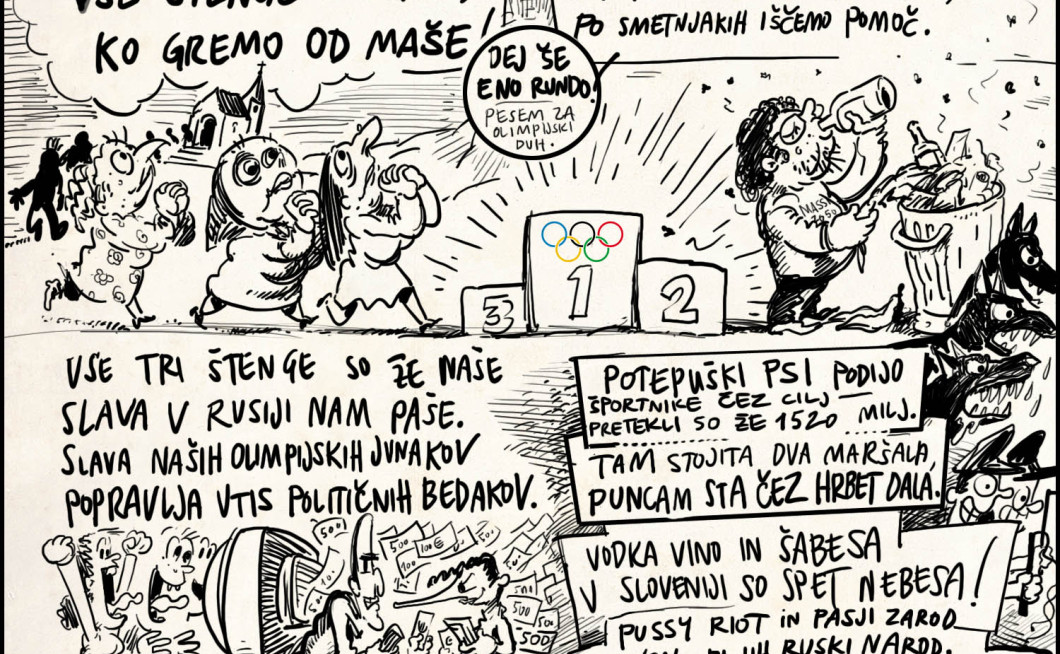 VSE ŠTENGE
KO GREMO OD MAŠE!
PO SMETNJAKIH IŠČEMO POMOČ.
DEJ ŠE
ENO RUNDO!
PESEM ZA
OLIMPIJSKI
DUH.
3
1
2
VSE TRI ŠTENGE SO ŽE NAŠE
SLAVA V RUSIJI NAM PAŠE.
SLAVA NAŠIH OLIMPIJSKIH JUNAKOV
POPRAVLJA VTIS POLITIČNIH BEDAKOV.
POTEPUŠKI PSI PODIJO
ŠPORTNIKE ČEZ CILJ
PRETEKLI SO ŽE 1520 MILJ.
TAM STOJITA DVA MARŠALA,
PUNCAM STA ČEZ HRBET DALA.
500
100€
500
500
500
VODKA VINO IN ŠABESA
V SLOVENIJI SO SPET NEBESA!
PUSSY RIOT in PASJI ZAROD
RUSKI NAROD.